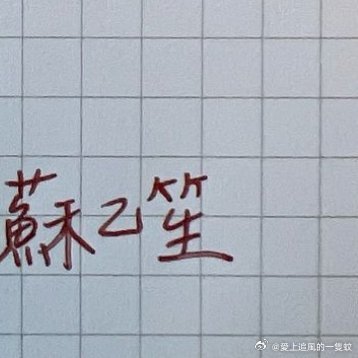 蘇乙笙
@愛上追風的一隻蚊